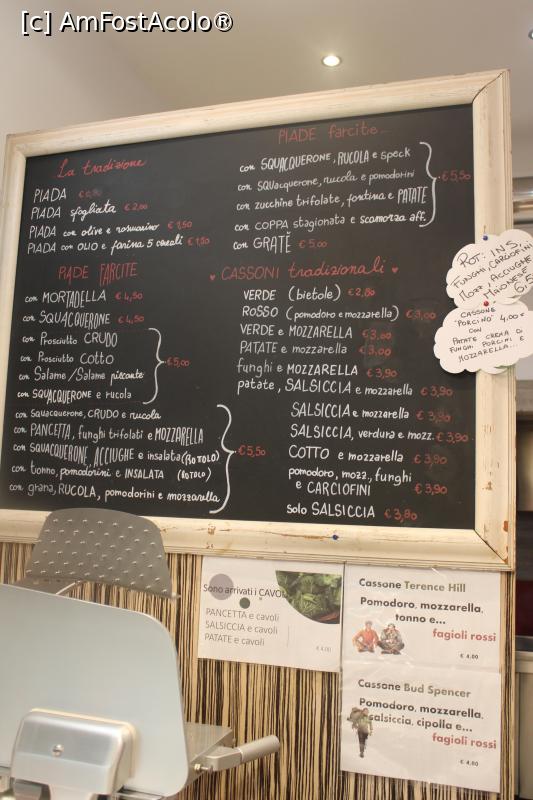 [c] AmFostAcolo®
La tradizione
PIADA
PIADA sfogliata € 2,00
PIADA con olive e rosmarino € 1,50
PIADA con OLIO e farina 5 cereali € 1,50
PIADE FARCITE
con MORTADELLA € 4,50
con SQUACQUERONE € 4,50
con Prosciutto CRUDO
con Prosciutto Cotto
con Salame/Salame piccante
con SQUACQUERONE e rucola
€ 5,00
con squacquerone, CRUDO e rucola
con PANCETTA, funghi trifolati e MOZZARELLA
con SQUACQUERONE, ACCIUGHE e insalata (ROTOLO)
con tonno, pomodorini e INSALATA (ROTOLO)
con grana, RUCOLA, pomodorini e mozzarella
€ 5,50
PIADE farcite...
con SQUACQUERONE, RUCOLA e speck
con squacquerone, rucola e pomodorini
con zucchine trifolate, fontina e PATATE
con COPPA stagionata e scamorza aff.
€ 5,50
con GRATÈ € 5,00
CASSONI tradizionali
VERDE (bietole) € 2,80
ROSSO (pomodoro e mozzarella) € 3,00
VERDE e MOZZARELLA € 3,00
PATATE e mozzarella € 3,00
funghi e MOZZARELLA € 3,90
patate, SALSICCIA e mozzarella € 3,90
SALSICCIA e mozzarella € 3,90
SALSICCIA, verdura e mozz. € 3,90
COTTO e mozzarella € 3,90
pomodoro, mozz., funghi
e CARCIOFINI € 3,90
solo SALSICCIA € 3,80
ROT: INS,
FUNGHI, CARCIOFINI
MOZZ, ACCIUGHE
MAIONESE
6.5
CASSONE
"PORCINO" 4,00€
CON
PATATE CREMA DI
FUNGHI PORCINI E
MOZZARELLA...
Sono arrivati i CAVOLI
PANCETTA e cavoli
SALSICCIA e cavoli
PATATE e cavoli
€ 4,00
Cassone Terence Hill
Pomodoro, mozzarella,
tonno e...
fagioli rossi
€ 4,00
Cassone Bud Spencer
Pomodoro, mozzarella,
salsiccia, cipolla e...
fagioli rossi
€ 4,00